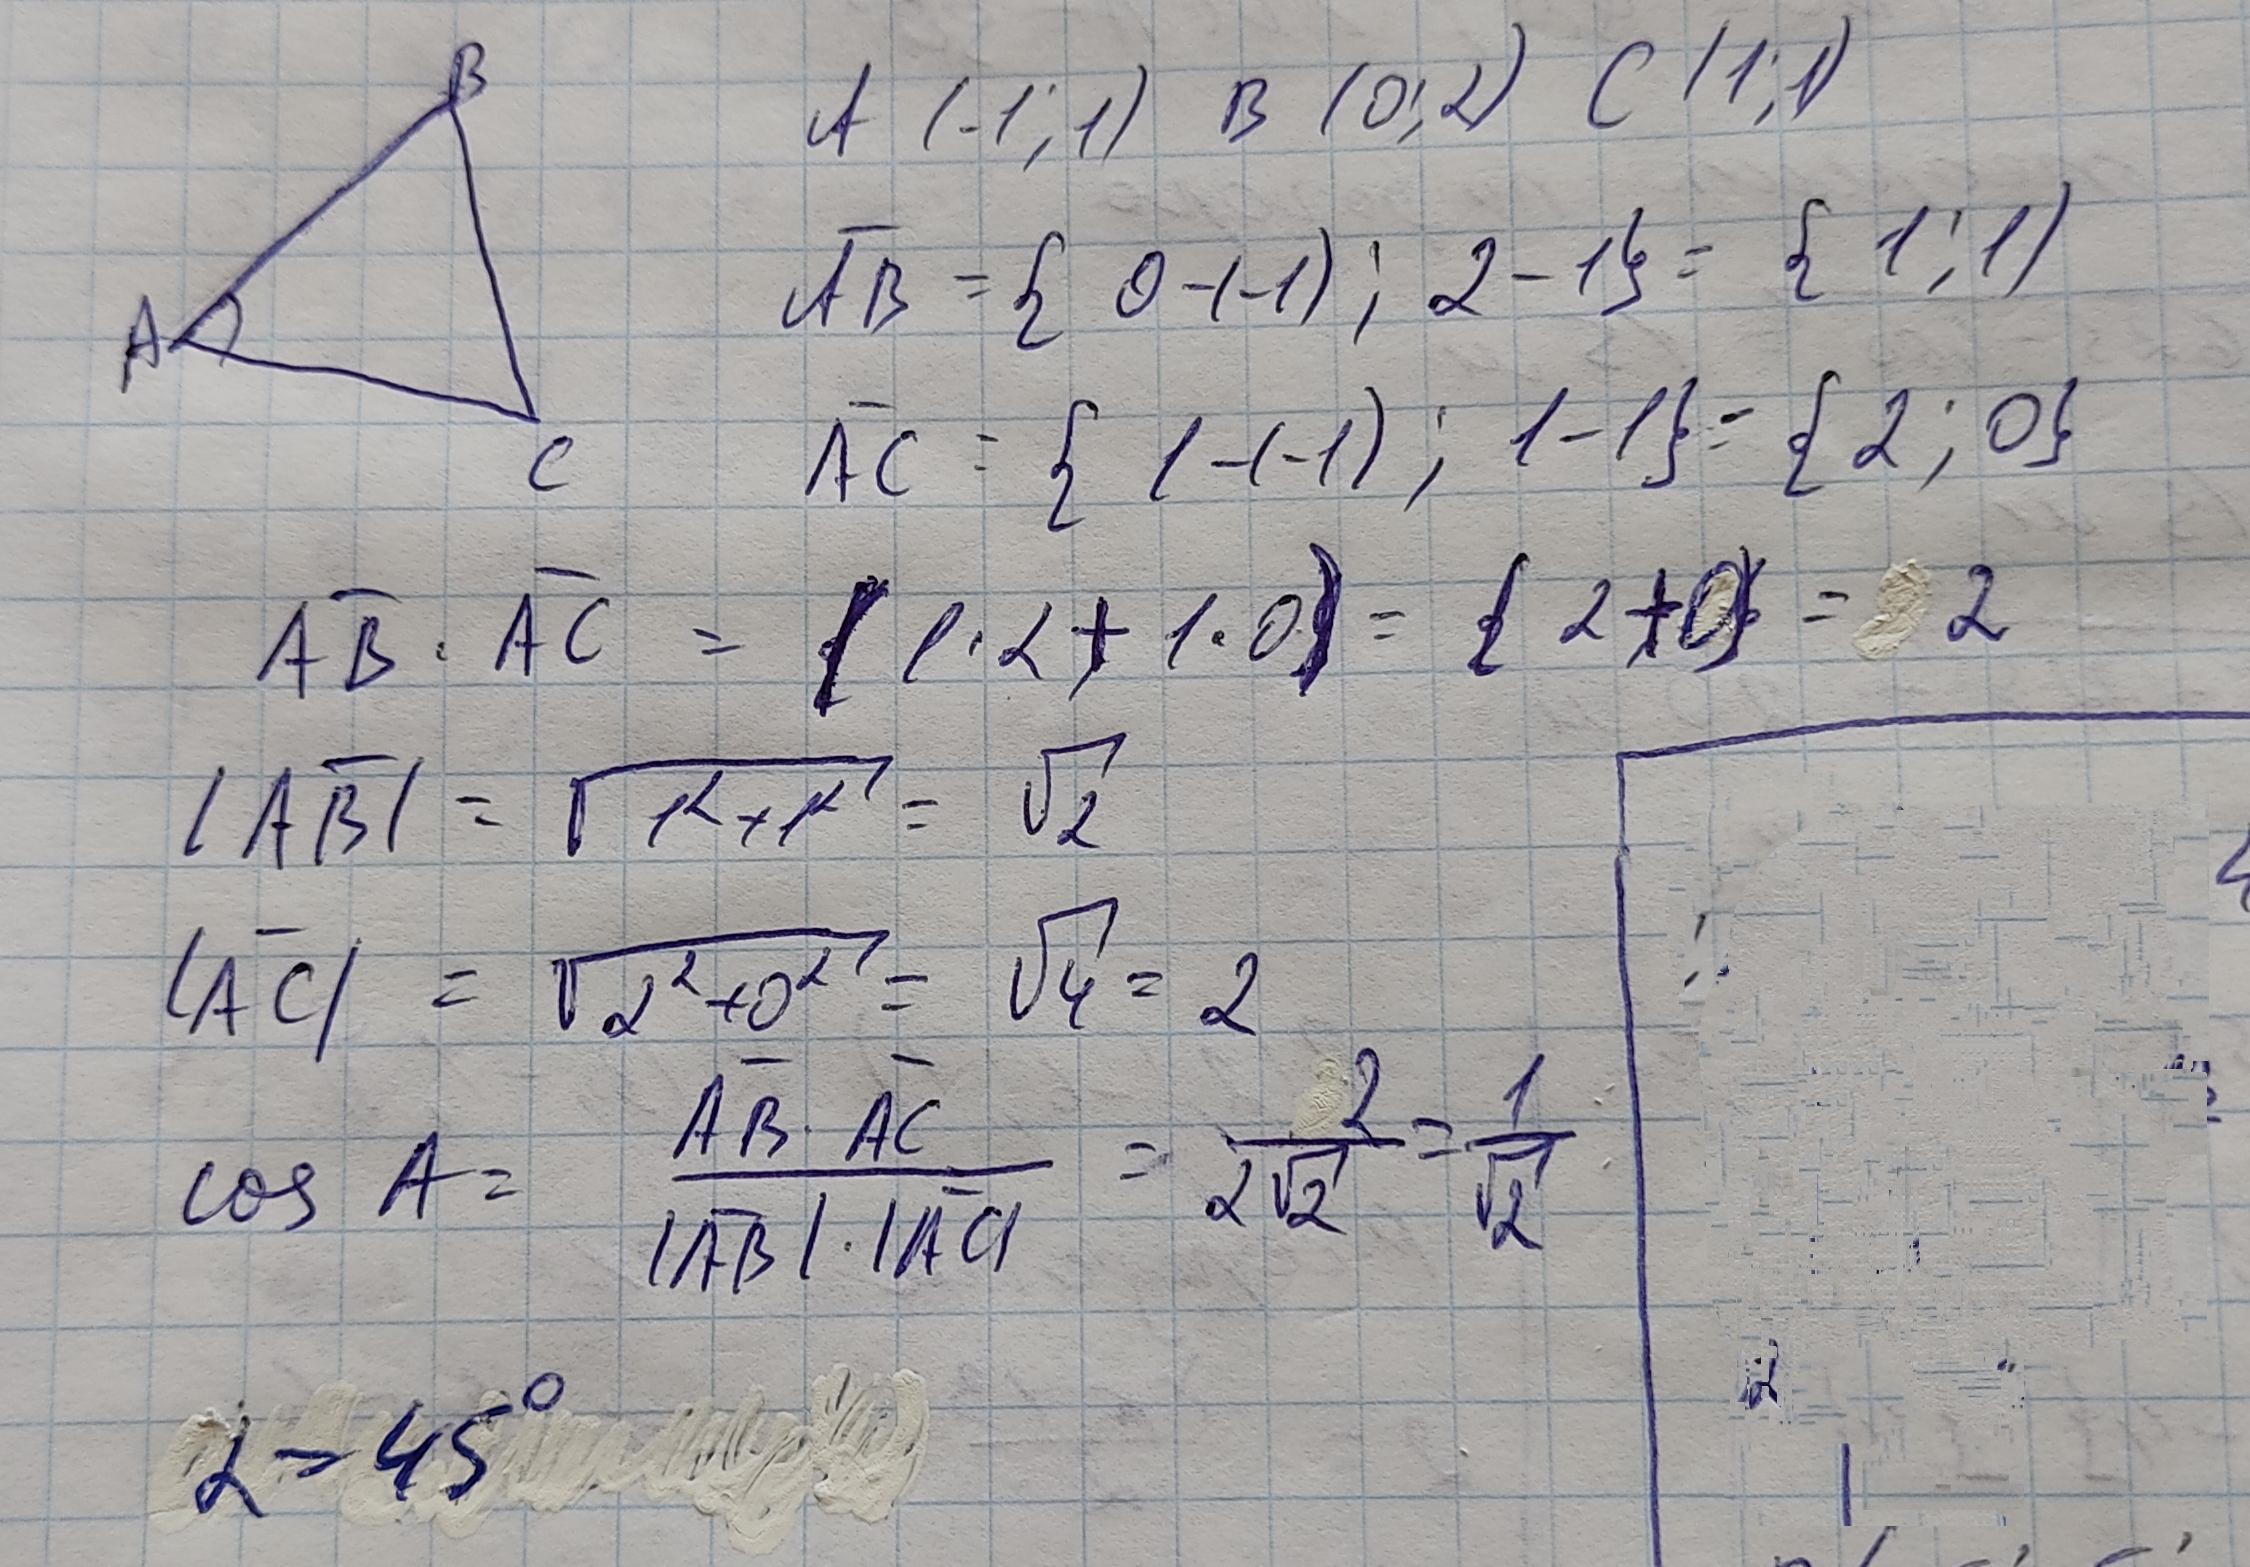 B
A
C
A (-1; 1) B (0; 2) C (1; 1)
A̅B̅ = { 0-(-1); 2-1} = { 1; 1)
A̅C̅ = { 1-(-1); 1-1} = { 2; 0}
A̅B̅ · A̅C̅ = ( 1·2 + 1·0) = { 2+0} = 2
|A̅B̅| = √(1²+1²) = √2
|A̅C̅| = √(2²+0²) = √4 = 2
cos A = A̅B̅ · A̅C̅ / |A̅B̅| · |A̅C̅| = 2 / 2√2 = 1 / √2
∠ = 45°
2